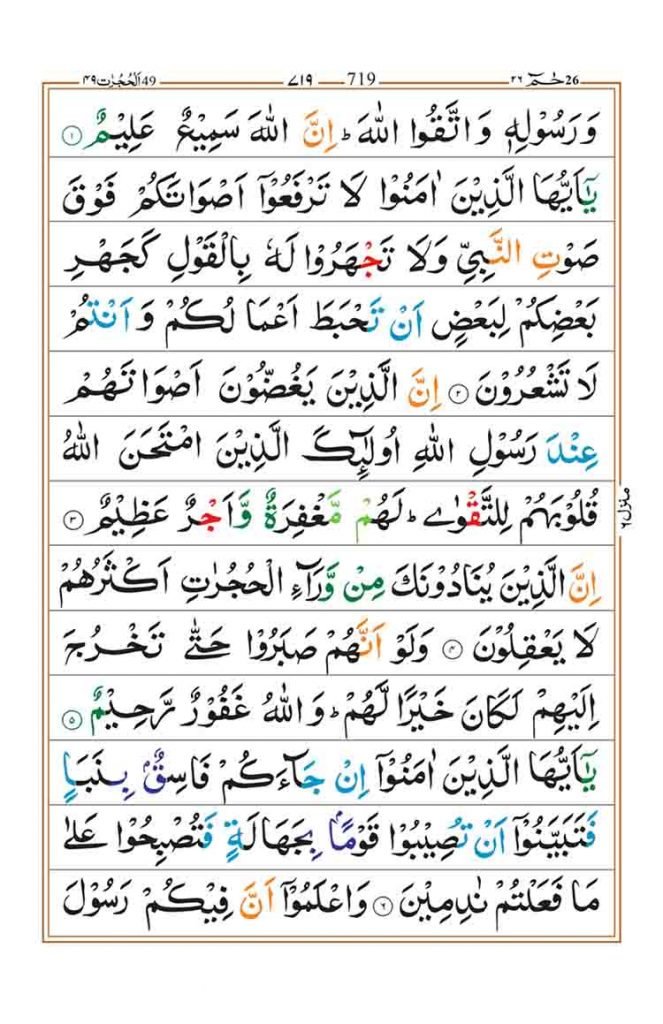 اَلْحُجُرٰت ۴۹ 49 ۷۱۹ 719 حٰمٓ ۲۶ 26
وَرَسُوْلِهٖ وَاتَّقُوا اللّٰهَ ؕ اِنَّ اللّٰهَ سَمِيْعٌ عَلِيْمٌ ۝۱
يٰۤاَيُّهَا الَّذِيْنَ اٰمَنُوْا لَا تَرْفَعُوْۤا اَصْوَاتَكُمْ فَوْقَ
صَوْتِ النَّبِيِّ وَلَا تَجْهَرُوْا لَهٗ بِالْقَوْلِ كَجَهْرِ
بَعْضِكُمْ لِبَعْضٍ اَنْ تَحْبَطَ اَعْمَا لُكُمْ وَ اَنْتُمْ
لَا تَشْعُرُوْنَ ۝۲ اِنَّ الَّذِيْنَ يَغُضُّوْنَ اَصْوَاتَهُمْ
عِنْدَ رَسُوْلِ اللّٰهِ اُولٰٓئِكَ الَّذِيْنَ امْتَحَنَ اللّٰهُ
قُلُوْبَهُمْ لِلتَّقْوٰى ؕ لَهُمْ مَّغْفِرَةٌ وَّاَجْرٌ عَظِيْمٌ ۝۳
اِنَّ الَّذِيْنَ يُنَادُوْنَكَ مِنْ وَّرَآءِ الْحُجُرٰتِ اَكْثَرُهُمْ
لَا يَعْقِلُوْنَ ۝۴ وَلَوْ اَنَّهُمْ صَبَرُوْا حَتّٰى تَخْرُجَ
اِلَيْهِمْ لَكَانَ خَيْرًا لَّهُمْ ؕ وَاللّٰهُ غَفُوْرٌ رَّحِيْمٌ ۝۵
يٰۤاَيُّهَا الَّذِيْنَ اٰمَنُوْۤا اِنْ جَآءَكُمْ فَاسِقٌۢ بِنَبَاٍ
فَتَبَيَّنُوْۤا اَنْ تُصِيْبُوْا قَوْمًاۢ بِجَهَالَةٍ فَتُصْبِحُوْا عَلٰى
مَا فَعَلْتُمْ نٰدِمِيْنَ ۝۶ وَاعْلَمُوْۤا اَنَّ فِيْكُمْ رَسُوْلَ
منزل ۶